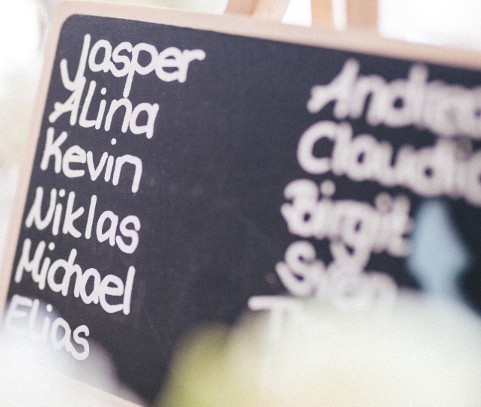 Jasper
Alina
Kevin
Niklas
Michael
Elias
Andrea
Claudia
Birgit
Sven